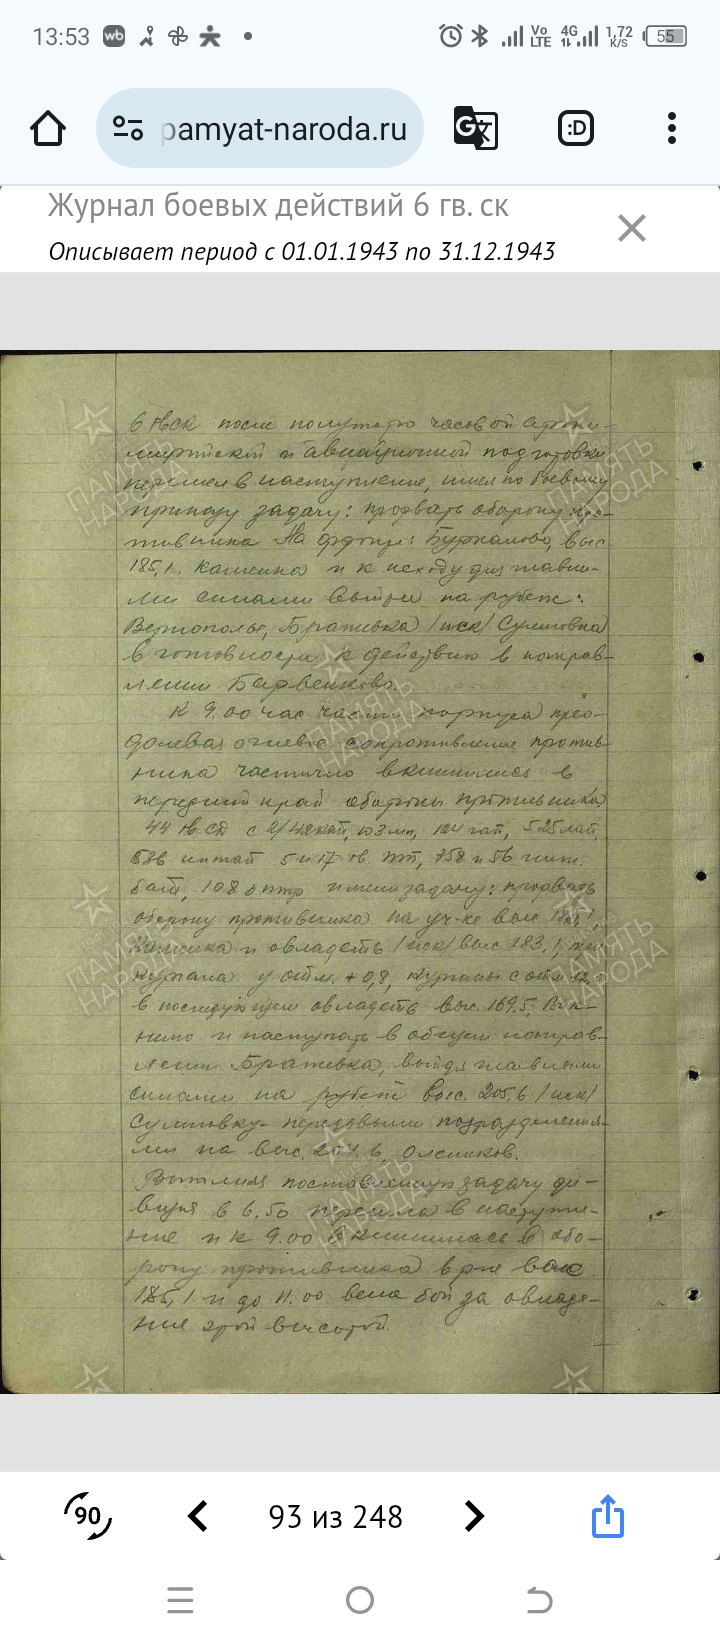 13:53
Vo LTE 4G 1,72 K/S 55
pamyat-naroda.ru :D
Журнал боевых действий 6 гв. ск
Описывает период с 01.01.1943 по 31.12.1943
6 Гв СК после полуторо часовой артил-
лерийской и авиационной подготовки
перешел в наступление, имел по боевому
приказу задачу: прорвать оборону про-
тивника на фронте: выс.
185,1. Каменка и к исходу дня главны-
ми силами выйти на рубеж:
Вернополье, Бражевка /иск/ Сулиговка
в готовности к действию в направ-
лении Барвенково.
К 9.00 час части корпуса прео-
долевая огневое сопротивление против-
ника частично вклинились в
передний край обороны противника
44 гв. СД с 2/ 124 гап, 525 лап,
иптап 5 и 17 гв. тп, и 56 
бат, 108 б птр имели задачу: прорвать
оборону противника на уч-ке выс
Каменка и овладеть /иск/ выс 183,1,
кургана у отм. +0,8, курган с отм
в последующем овладеть выс. 169.5,
и наступать в общем направ-
лении Бражевка, выйдя главными
силами на рубеж выс. 205,6 /иск/
Сулиговку передовыми подразделения-
ми на выс. 204.6,
Выполняя поставленную задачу ди-
визия в 6.50 перешла в наступле-
ние и к 9.00 вклинилась в обо-
рону противника в р-не выс
185,1 и до 11.00 вела бой за овладе-
ние этой высотой.
ПАМЯТЬ НАРОДА
90 93 из 248